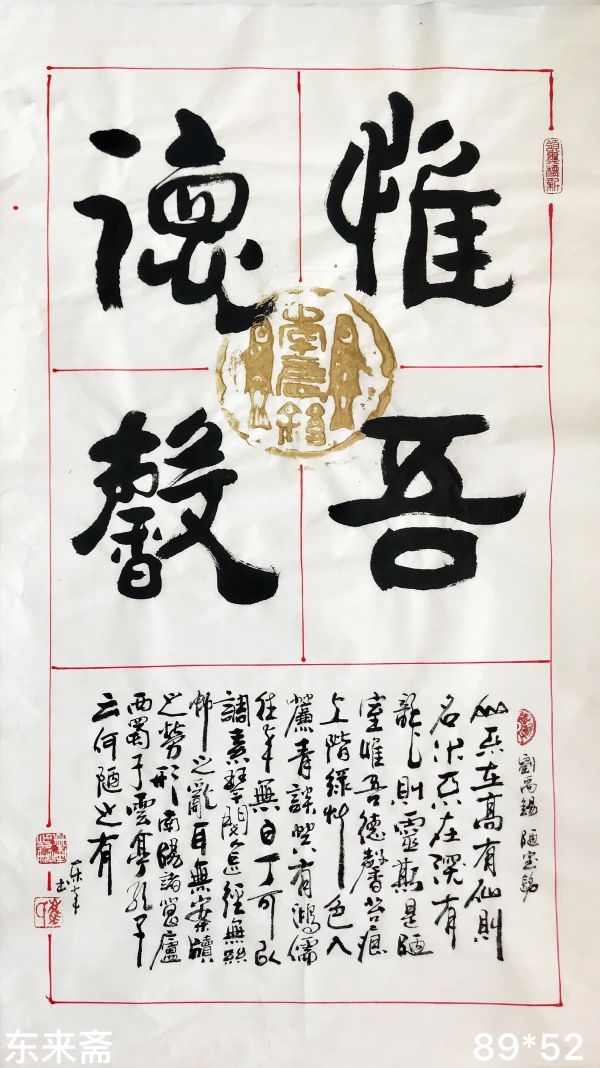 惟吾
德馨
領異標新
劉禹錫陋室銘
山不在高有仙則
名水不在深有
龍則靈斯是陋
室惟吾德馨苔痕
上階綠艸色入
簾青談笑有鴻儒
往来無白丁可以
調素琴閱金經無絲
竹之亂耳無案牘
之勞形南陽諸葛廬
西蜀子雲亭孔子
云何陋之有
东来斋
89*52